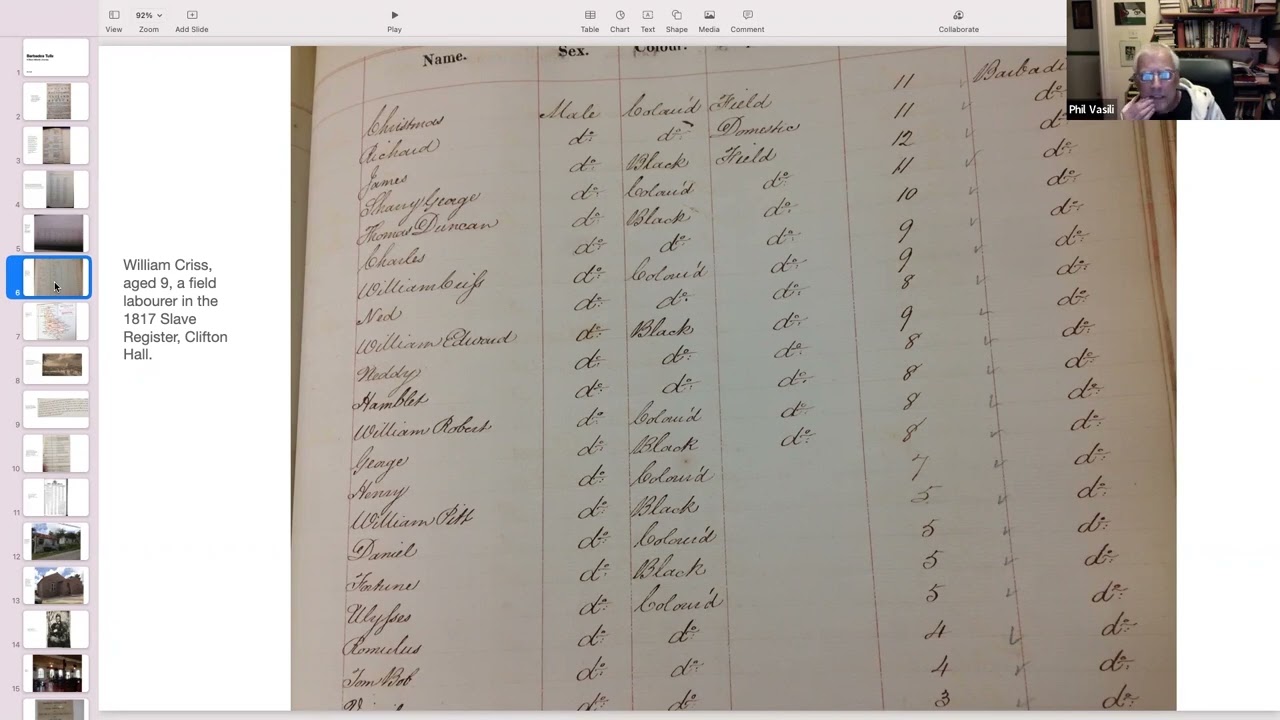 View 92% Zoom Add Slide Play Table Chart Text Shape Media Comment Collaborate
Phil Vasili
Barbados Tulls
1
2
3
4
5
6
7
8
9
10
11
12
13
14
15
William Criss,
aged 9, a field
labourer in the
1817 Slave
Register, Clifton
Hall.
Name. Sex. Colour.
Christmas Male Colour'd Field 11 Barbad
Richard do: do: Domestic 11 do:
James do: Black Field 12 do:
Sharry George do: Colour'd do: 11 do:
Thomas Duncan do: Black do: 10 do:
Charles do: do: do: 9 do:
William Criss do: Colour'd do: 9 do:
Ned do: do: do: 8 do:
William Edward do: Black do: 9 do:
Neddy do: do: do: 8 do:
Hamblet do: do: do: 8 do:
William Robert do: Colour'd do: 8 do:
George do: Black do: 8 do:
Henry do: Colour'd 7 do:
William Pitt do: Black 5 do:
Daniel do: Colour'd 5 do:
Fortune do: Black 5 do:
Ulysses do: Colour'd 5 do:
Romulus do: do: 4 do:
Tom Bob do: do: 4 do:
do: 3